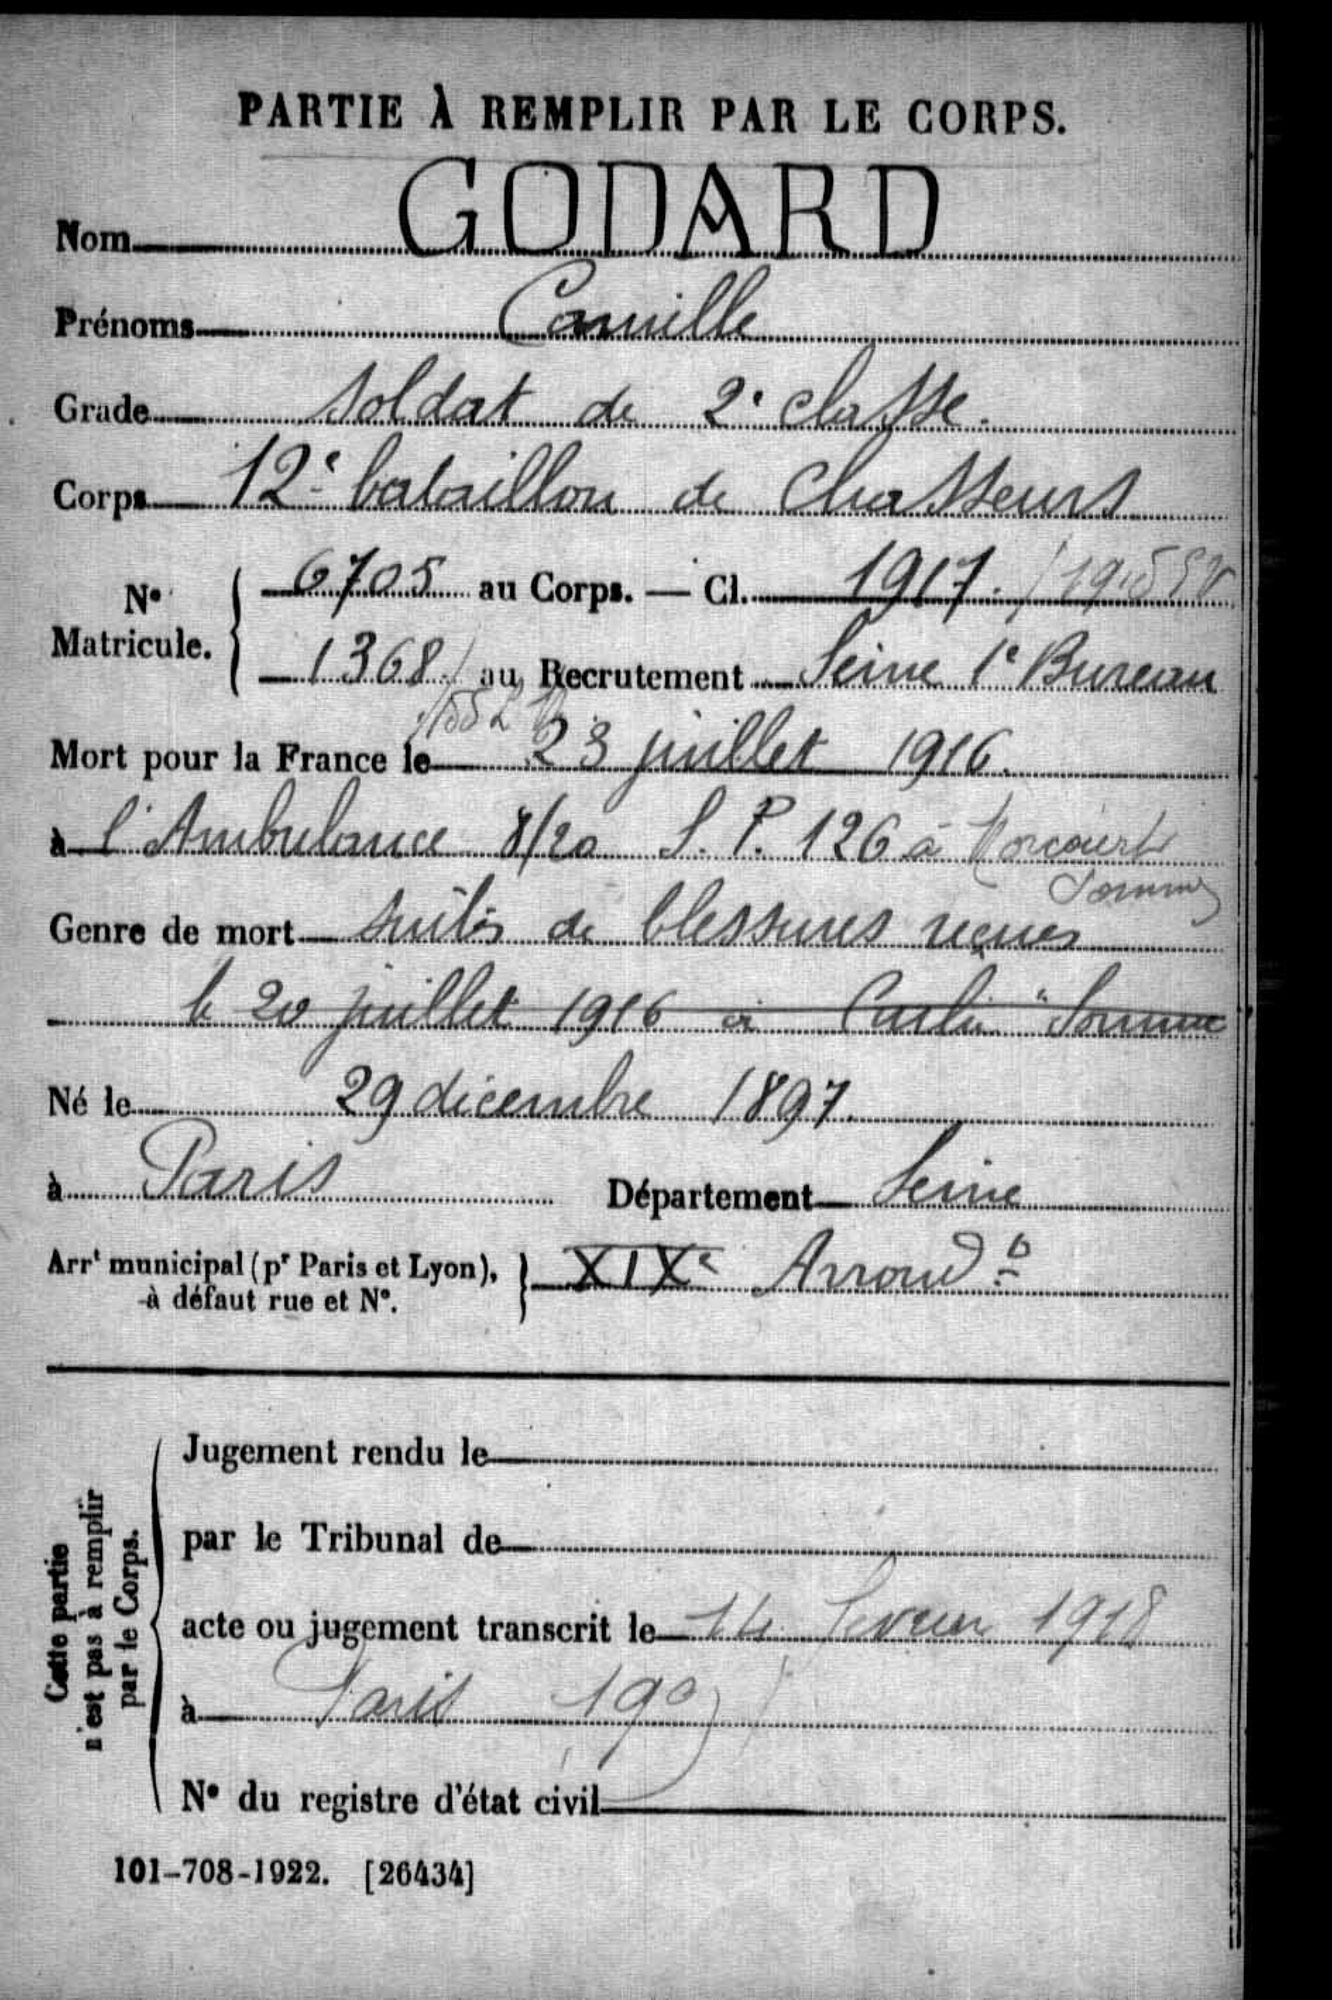 PARTIE À REMPLIR PAR LE CORPS.
Nom GODARD
Prénoms Camille
Grade soldat de 2e classe.
Corps 12e bataillon de Chasseurs
No Matricule. { 6705 au Corps. — Cl. 1917. /
1368 / au Recrutement Seine 1e Bureau
Mort pour la France le 23 juillet 1916.
à l'Ambulance 8/20 S. P. 126 à
Somme
Genre de mort suites de blessures reçues
le 20 juillet 1916 à Somme
Né le 29 décembre 1897.
à Paris Département Seine
Arrt municipal (pr Paris et Lyon), à défaut rue et No. } XIXe Arrondt
Cette partie n'est pas à remplir par le Corps.
Jugement rendu le
par le Tribunal de
acte ou jugement transcrit le 14 fevrier 1918
à Paris 19e
No du registre d'état civil
101-708-1922. [26434]